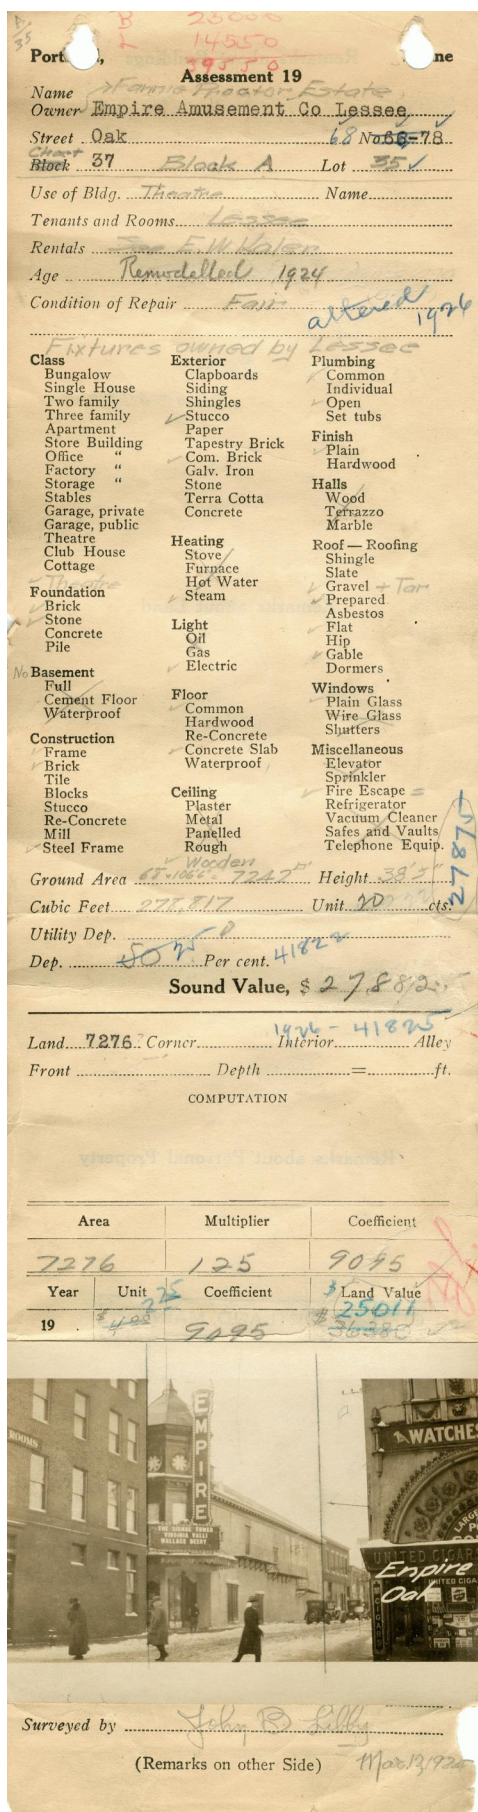 B 25000
L 14550
39550
Port , ne
Assessment 19
Name Theater Estate
Owner Empire Amusement Co Lessee
Street Oak 68 No 66-78
Chart
Block 37 Block A Lot 35
Use of Bldg. Theatre Name
Tenants and Rooms Lessee
Rentals See E.W.
Age Remodelled 1924
Condition of Repair Fair altered 1926
Fixtures owned by Lessee
Class
Bungalow
Single House
Two family
Three family
Apartment
Store Building
Office "
Factory "
Storage "
Stables
Garage, private
Garage, public
Theatre
Club House
Cottage
Theatre
Foundation
Brick
Stone
Concrete
Pile
No Basement
Full
Cement Floor
Waterproof
Construction
Frame
Brick
Tile
Blocks
Stucco
Re-Concrete
Mill
Steel Frame
Exterior
Clapboards
Siding
Shingles
Stucco
Paper
Tapestry Brick
Com. Brick
Galv. Iron
Stone
Terra Cotta
Concrete
Heating
Stove
Furnace
Hot Water
Steam
Light
Oil
Gas
Electric
Floor
Common
Hardwood
Re-Concrete
Concrete Slab
Waterproof
Ceiling
Plaster
Metal
Panelled
Rough
Wooden
Plumbing
Common
Individual
Open
Set tubs
Finish
Plain
Hardwood
Halls
Wood
Terrazzo
Marble
Roof — Roofing
Shingle
Slate
Gravel + Tar
Prepared
Asbestos
Flat
Hip
Gable
Dormers
Windows
Plain Glass
Wire Glass
Shutters
Miscellaneous
Elevator
Sprinkler
Fire Escape =
Refrigerator
Vacuum Cleaner
Safes and Vaults
Telephone Equip.
27875
Ground Area 7242 Height 38'5"
Cubic Feet 278,817 Unit 20 cts.
Utility Dep.
Dep. Per cent. 41822
Sound Value, $ 27882
1926 - 41825
Land 7276 Corner Interior Alley
Front Depth = ft.
COMPUTATION
Area Multiplier Coefficient
7276 125 9095
Year Unit 2.75 Coefficient $ Land Value
25011
19 $ 4.00 9095 $ 36380
ROOMS
EMPIRE
THE SIGNAL TOWER
VIRGINIA VALLI
WALLACE BEERY
WATCHES
UNITED CIGAR
UNITED CIGA
Empire
Oak
Surveyed by John B Libby
(Remarks on other Side) Mar 13, 1925